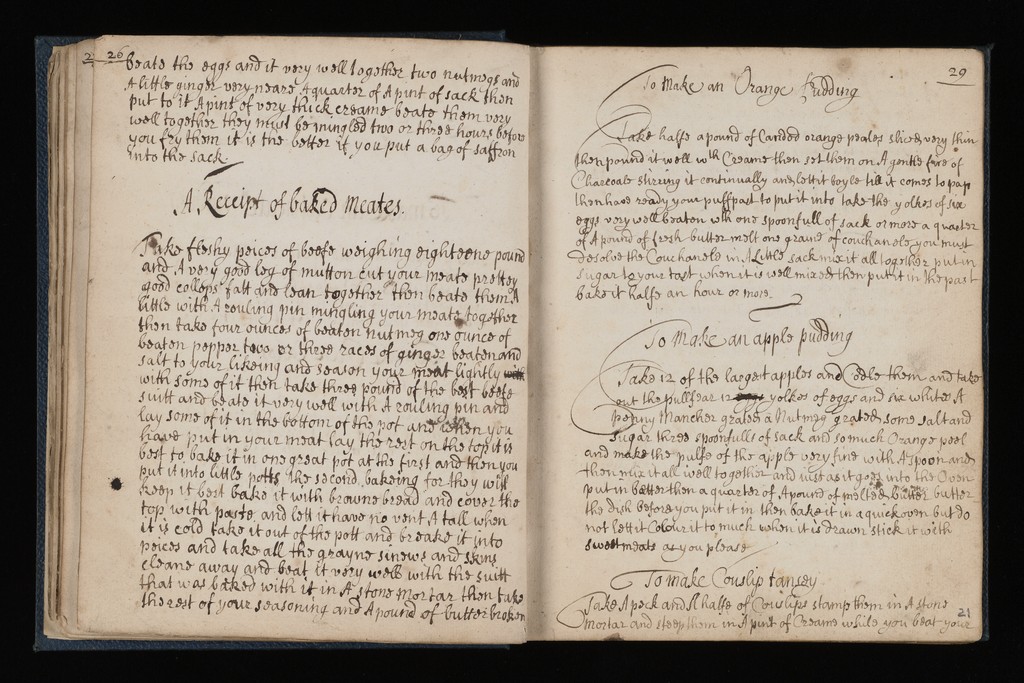 2 26
beate the eggs and it very well together two nutmegs and
A little ginger very neare A quarter of A pint of sack then
put to it A pint of very thick creame beate them very
well together they must be mingled two or three hours before
you fry them it is the better if you put a bag of saffron
into the sack
A Receipt of baked meates.
Take fleshy peices of beefe weighing eighteene pound
and A very good leg of mutton cut your meate prettey
good collops fatt and lean together then beate them A
little with A rouling pin mingling your meate together
then take four ounces of beaten nutmeg one ounce of
beaten pepper two or three races of ginger beaten and
salt to your likeing and season your meat lightly
with some of it then take three pound of the best beefe
suitt and beate it very well with A rouling pin and
lay some of it in the bottom of the pot and when you
have put in your meat lay the rest on the top it is
best to bake it in one great pot at the first and then you
put it into little potts the second bakeing for they will
keep it best bake it with browne bread and cover the
top with paste and lett it have no vent A tall when
it is cold take it out of the pott and breake it into
peices and take all the grayne sinews and skins
cleane away and beat it very well with the suitt
that was baked with it in A stone mortar then take
the rest of your seasoning and A pound of butter broken
29
To Make an Orange Pudding
Take halfe a pound of Canded orange peales sliced very thin
then pound it well wth Creame then set them on A gentle fire of
Charcoale stirring it continually and lett it boyle till it comes to pap
then have ready your puffpast to put it into take the yolkes of six
eggs very well beaten wth one spoonfull of sack or more a quarter
of A pound of fresh butter melt one graine of couchanele you must
desolve the Couchanele in A Little sack mix it all together put in
sugar to your tast when it is well mixed then put it in the past
bake it halfe an hour or more.
To Make an apple pudding
Take 12 of the largest apples and Codle them and take
out the pulfe 12 yolkes of eggs and six whites A
penny Manchet grated a Nutmeg grated some salt and
sugar three spoonfulls of sack and so much Orange peel
and make the pulfe of the apple very fine with A spoon and
then mix it all well together and iuse as it goes into the Oven
put in better then a quarter of A pound of melted butter butter
the dish before you put it in then bake it in a quick oven but do
not lett it Colour it to much when it is drawn stick it with
sweetmeats as you please
To make Couslip tansey
Take A peck and A halfe of Couslips stamp them in A stone
mortar and steep them in A pint of Creame while you beat your
21